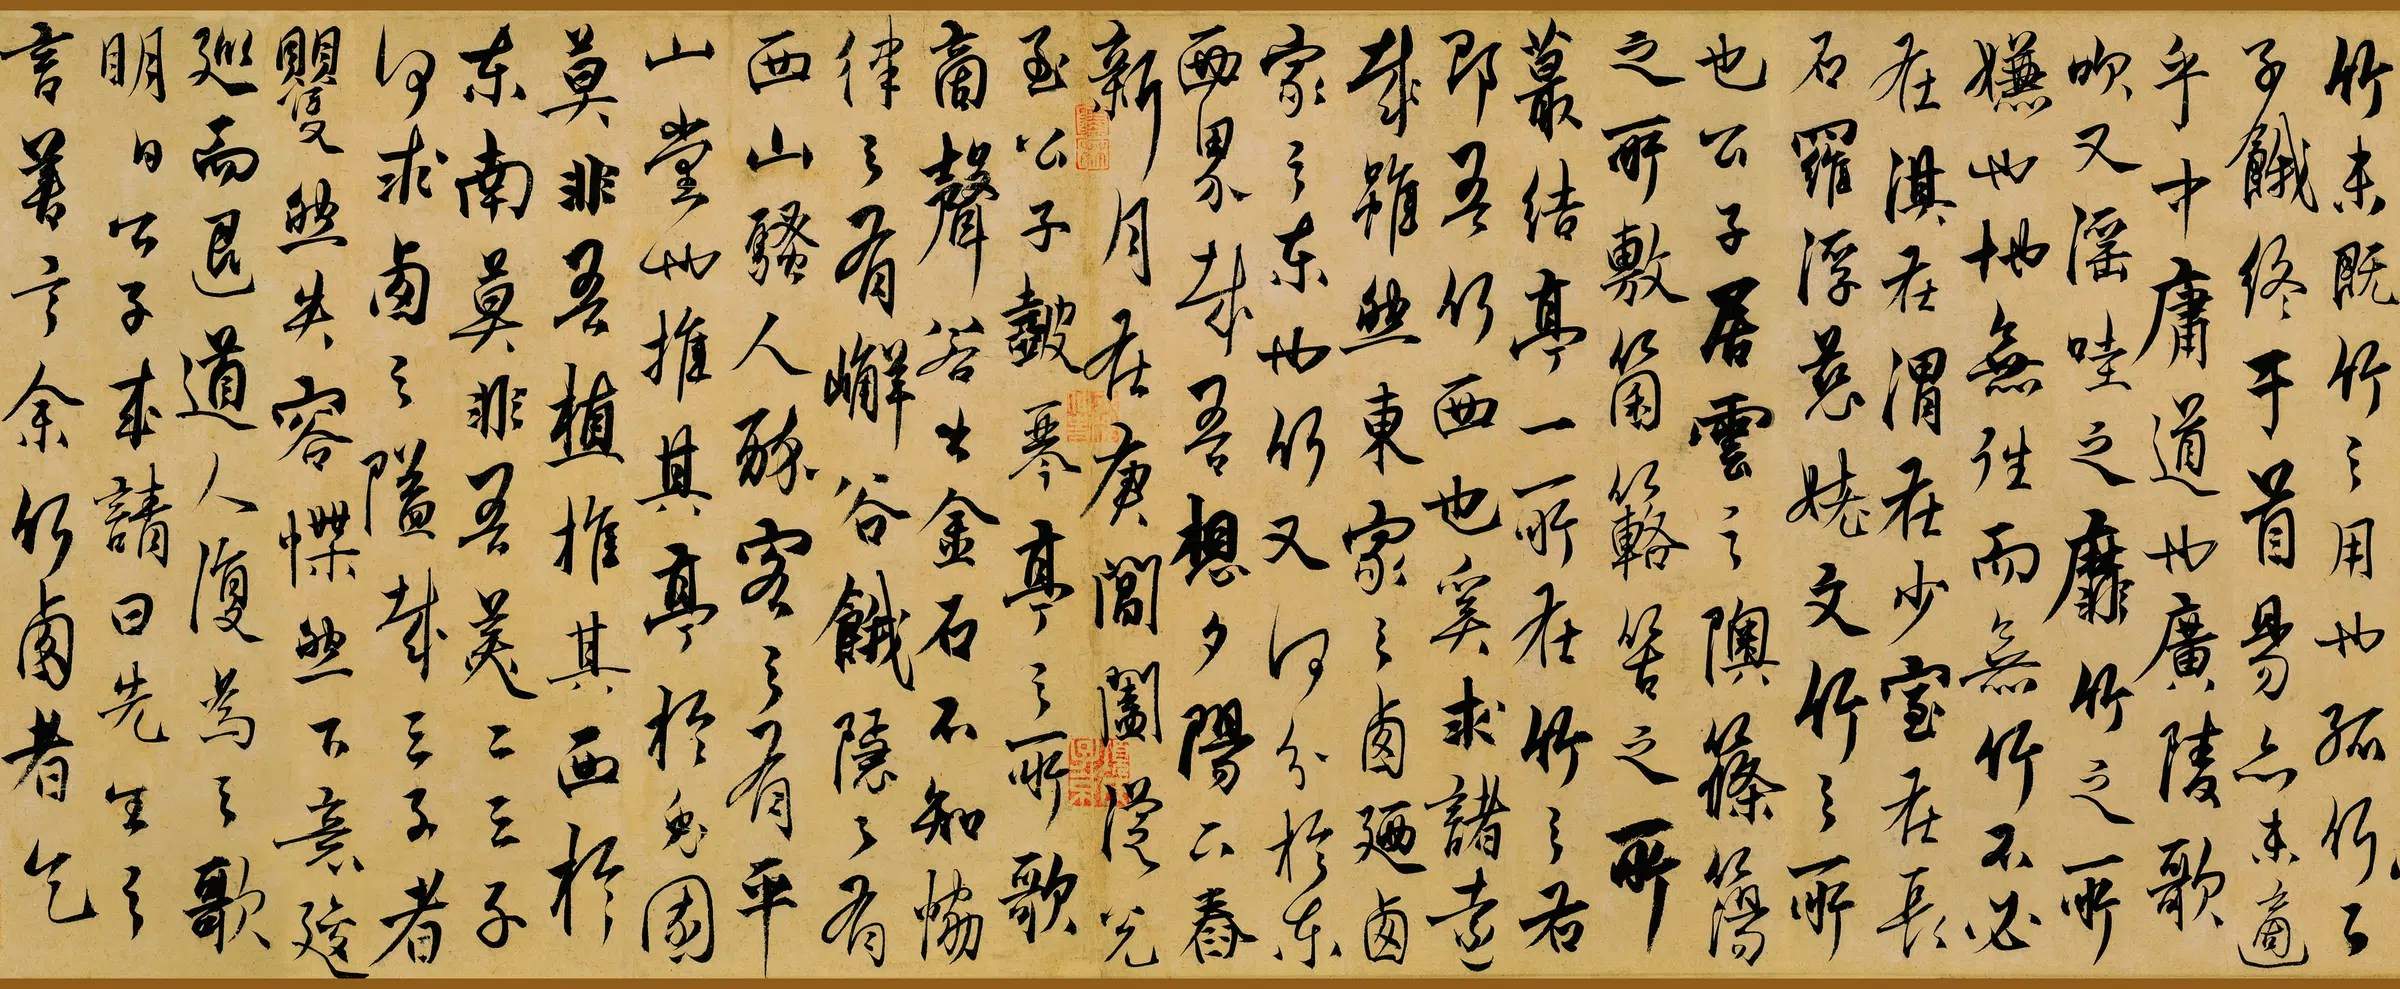 竹未既竹之用也孤竹之
子餓終于首昜亦未適
乎中庸道也廣陵歌
吹又滛哇之靡竹之所
嫌也地無往而無竹不必
在淇在渭在少室在長
石羅浮慈姥文竹之所
也公子居雲之隩篠簜
之所敷箘簵箈之所
叢結亭一所在竹之右
即吾竹西也奚求諸遠
哉雖然東家之西廼西
家之東也竹又何分於東
西界哉吾想夕陽下舂
新月在庚閶闔從兌
至公子鼓琴亭之所歌
商聲若出金石不知協
律之有嶰谷餓隱之有
西山騷人醉客之有平
山堂也推其亭於兔園
莫非吾植推其西於
東南莫非吾美二三子
何求西之隘哉三子者
矍然失容慄然下意逡
巡而退道人復為之歌
明日公子來請曰先生之
言善言余竹西者乞